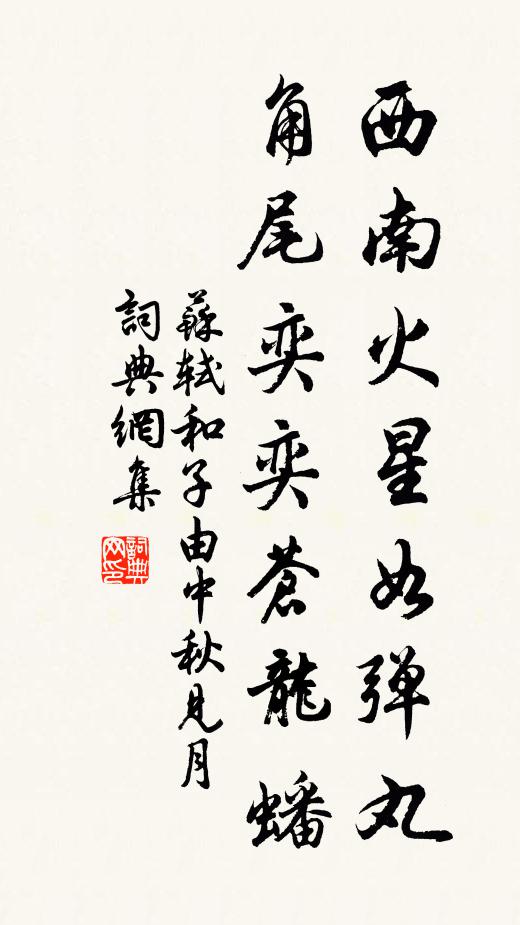 西南火星如弹丸
角尾奕奕蒼龍蟠
蘇軾和子由中秋見月
詞典網集
詞典網印